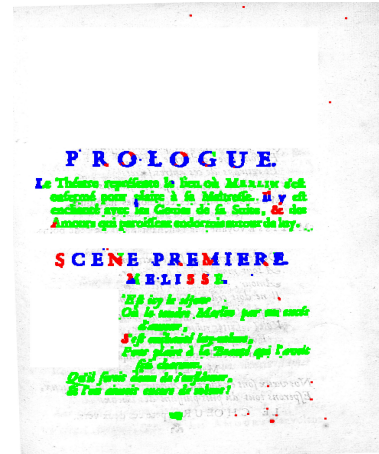 PROLOGUE.
Le Théatre represente le lieu où MERLIN s'est
enfermé pour plaire à sa Maîtresse. Il y est
enchanté avec les Genies de sa Suite, & des
Amours qui paroissent endormis autour de luy.
SCENE PREMIERE.
MELISSE.
Est icy le séjour
Où le tendre Merlin par un excés
d'amour,
S'est enchanté luy-même,
Pour plaire à la Beauté qui l'avoit
sçû charmer,
Qu'il seroit doux de
Si l'on aimoit encore de même;
LE CHOEUR